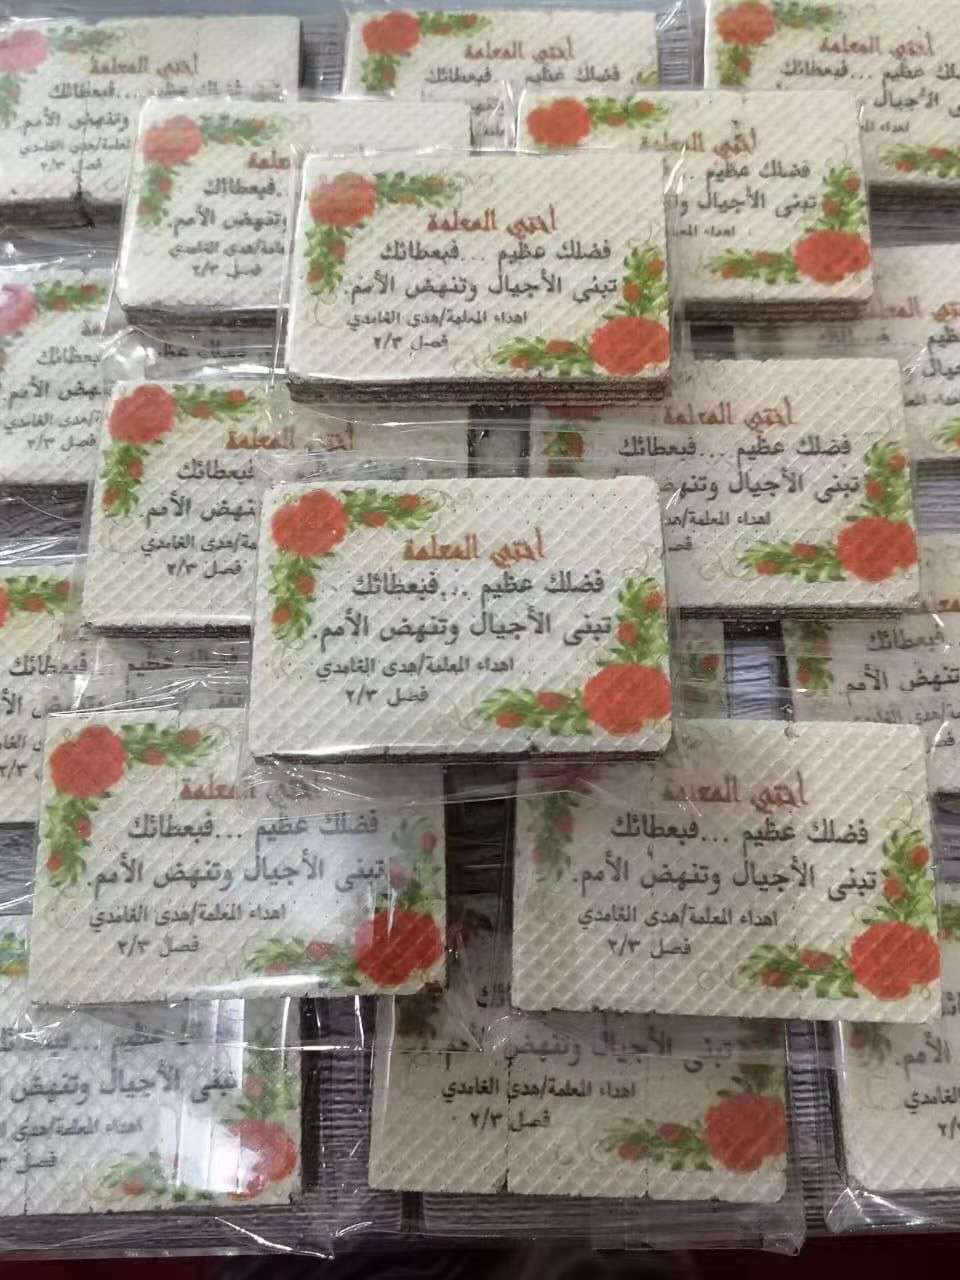 أختي المعلمة
فضلك عظيم ...فبعطائك
تبنى الأجيال وتنهض الأمم.
اهداء المعلمة/هدى الغامدي
فصل ٢/٣